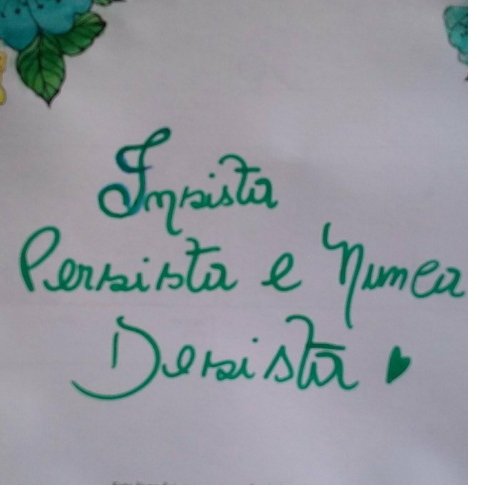 Insista
Persista e Nunca
Desista